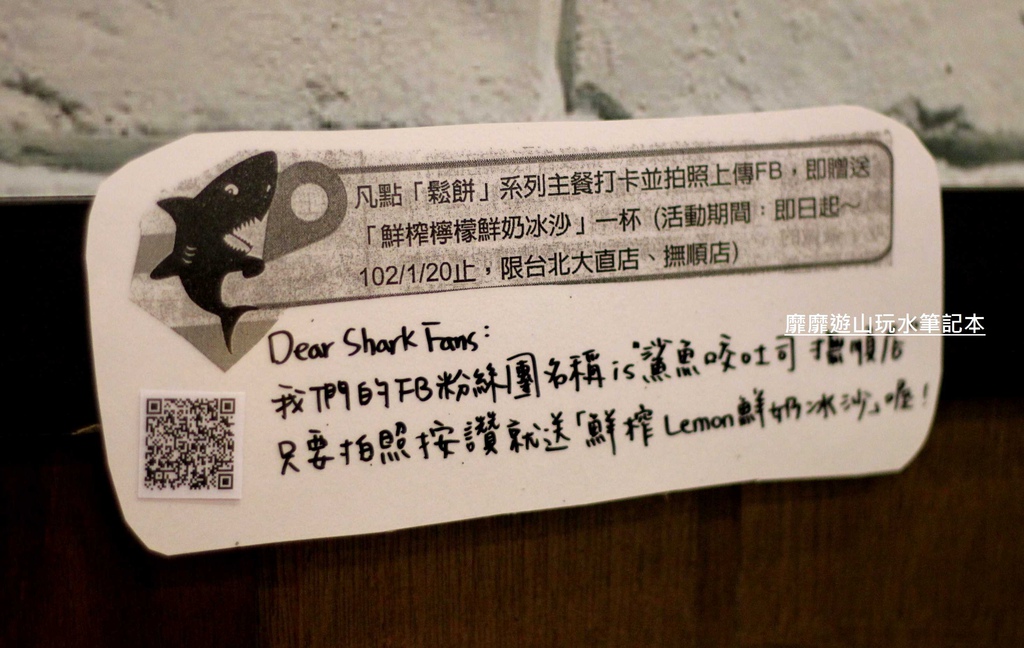 凡點「鬆餅」系列主餐打卡並拍照上傳FB，即贈送
「鮮榨檸檬鮮奶冰沙」一杯（活動期間：即日起～
102/1/20止，限台北大直店、撫順店）
靡靡遊山玩水筆記本
Dear Shark Fans:
我們的FB粉絲團名稱is"鯊魚咬吐司 撫順店
只要拍照按讚就送「鮮榨Lemon鮮奶冰沙」喔！